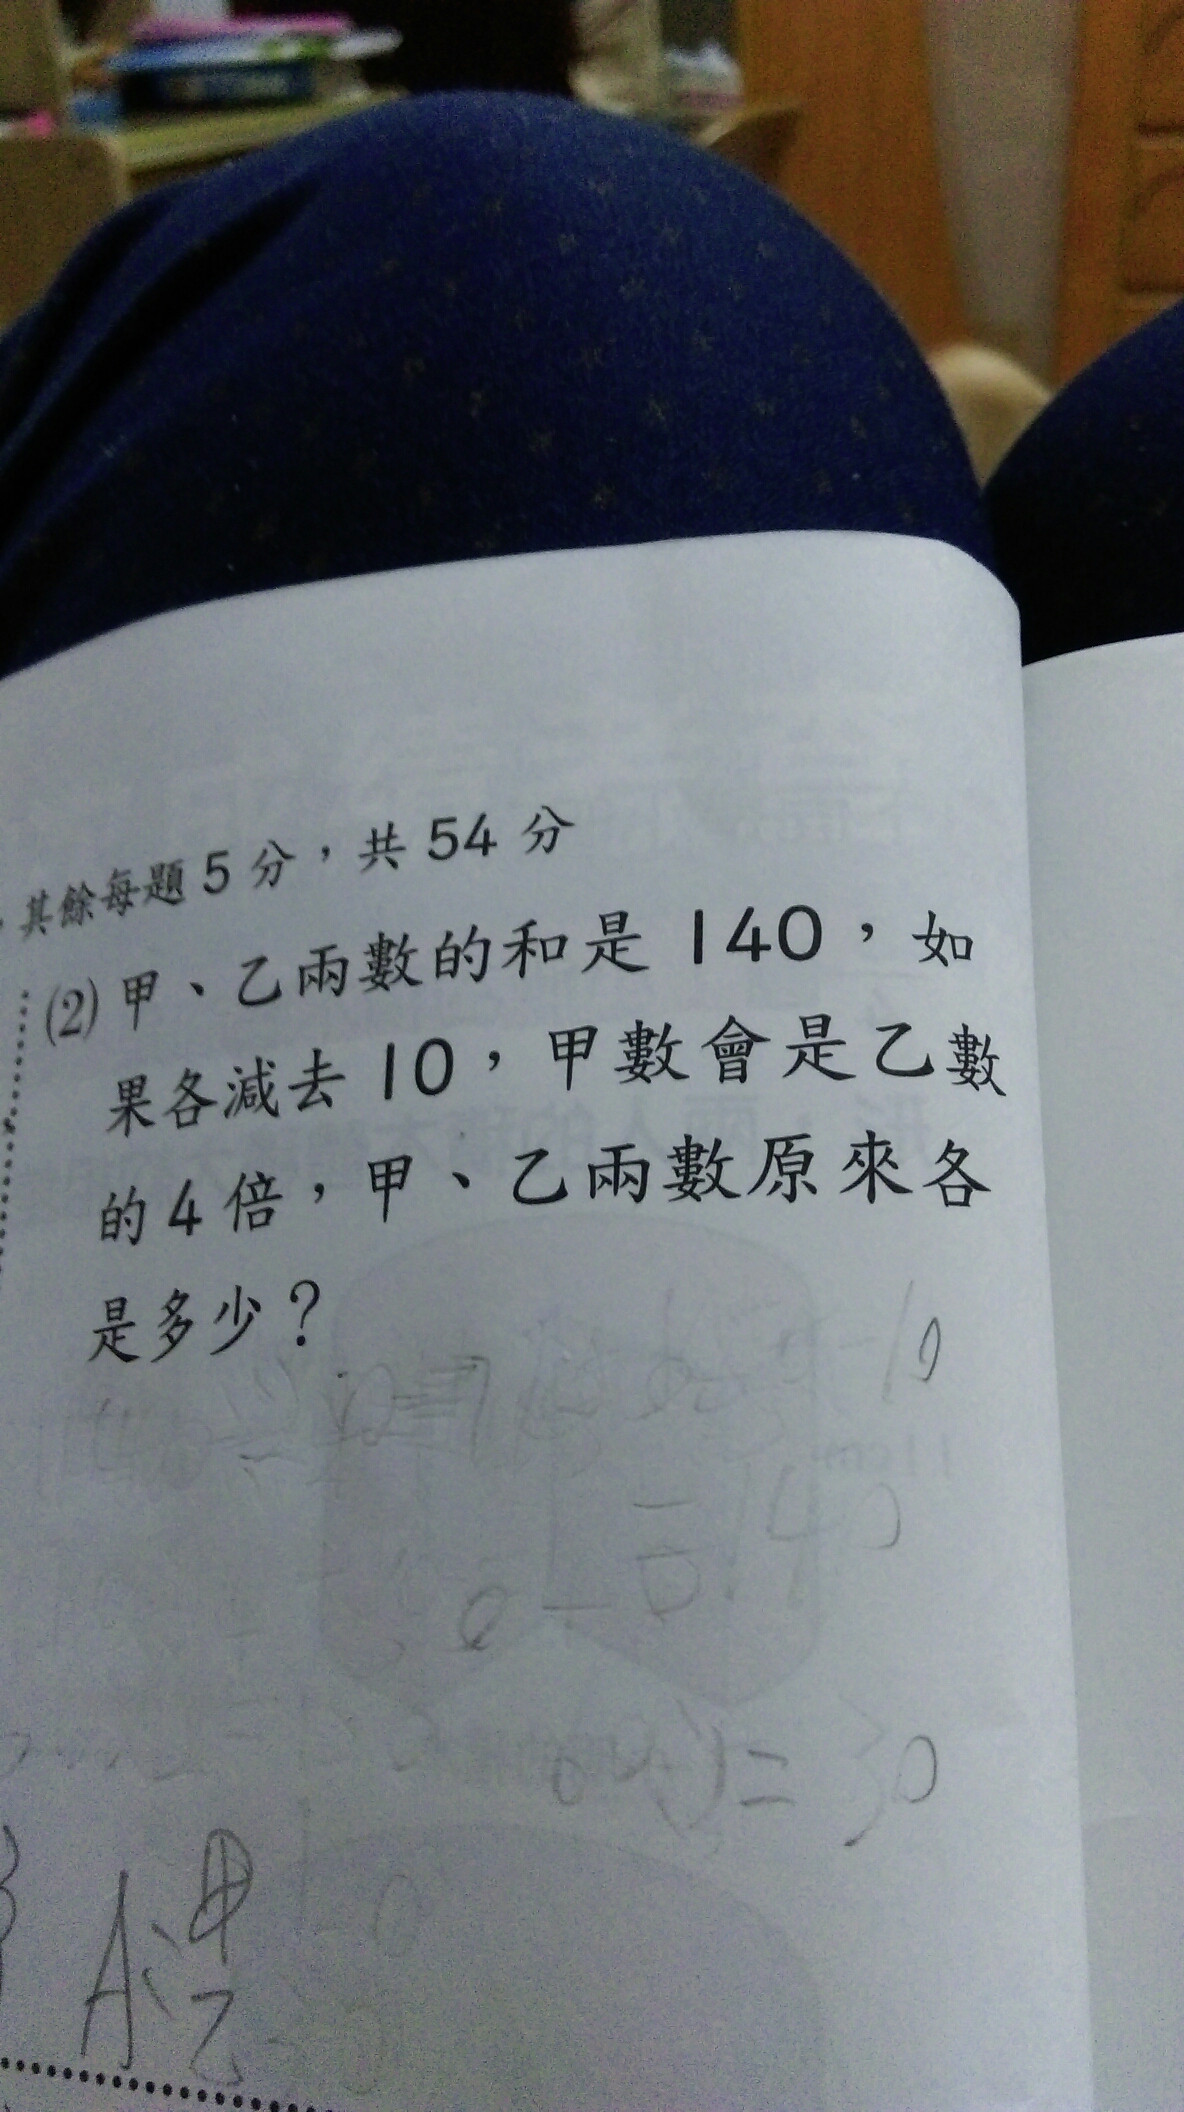 其餘每題5分，共54分
(2)甲、乙兩數的和是140，如
果各減去10，甲數會是乙數
的4倍，甲、乙兩數原來各
是多少？
10
=140
=30
A：甲
乙